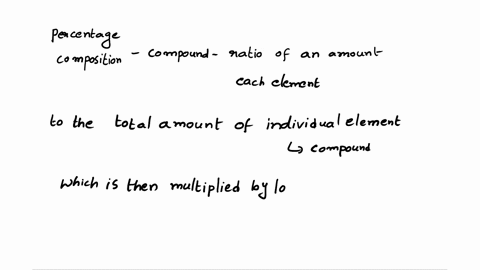 Percentage
composition - compound - ratio of an amount
each element
to the total amount of individual element
↳ compound
which is then multiplied by 10